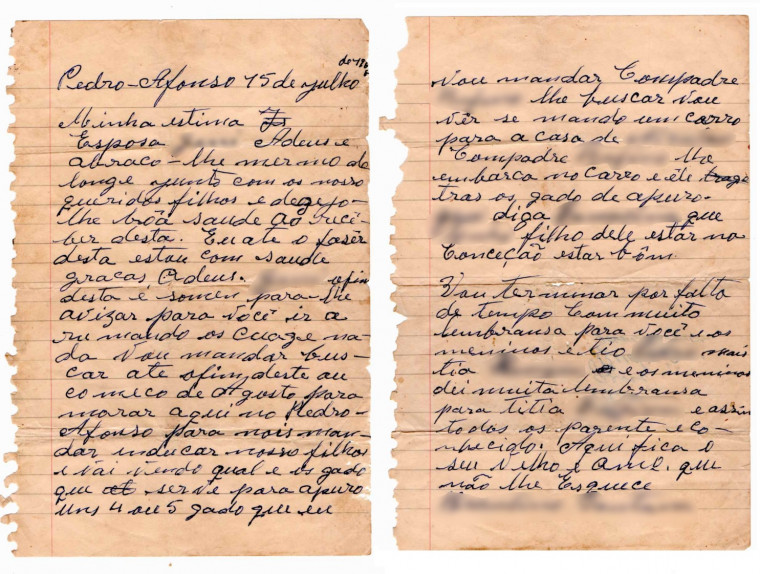 Pedro-Afonso 15 de julho
Minha estima
Esposa Adeus e
abraco-lhe mermo de
longe junto com os nosso
queridos filhos e degejo-
lhe bôa saude ao recê-
ber desta. Eu ate o fasêr
desta estou com saude
gracas, Adeus. ofin
desta é somen para-lhe
avizar para você ir a
ru mando os cuaze na-
da vou mandar bus-
car ate ofin deste au
comeco de Agosto para
morar aqui no Pedro-
Afonso para nois man-
dar inducar nosso filhos
e vai vendo qual e os gado
que serve para apuro
uns 4 ou 5 gado que eu
vou mandar Compadre
lhe buscar vou
vêr se mando um carro
para a casa de
Compadre lhe
embarca no carro e êle
tras os gado de apuro.
diga que
filho dele estar no
Conceção estar bôm
Vou terminar por falto
de tempo com muito
lembransa para você e os
meninos e tio mais
tia e os meninos
dei muita lembransa
para titia e assin
todos os parente e co-
nhecido. Aqui fica o
seu velho e que
não lhe Esquece